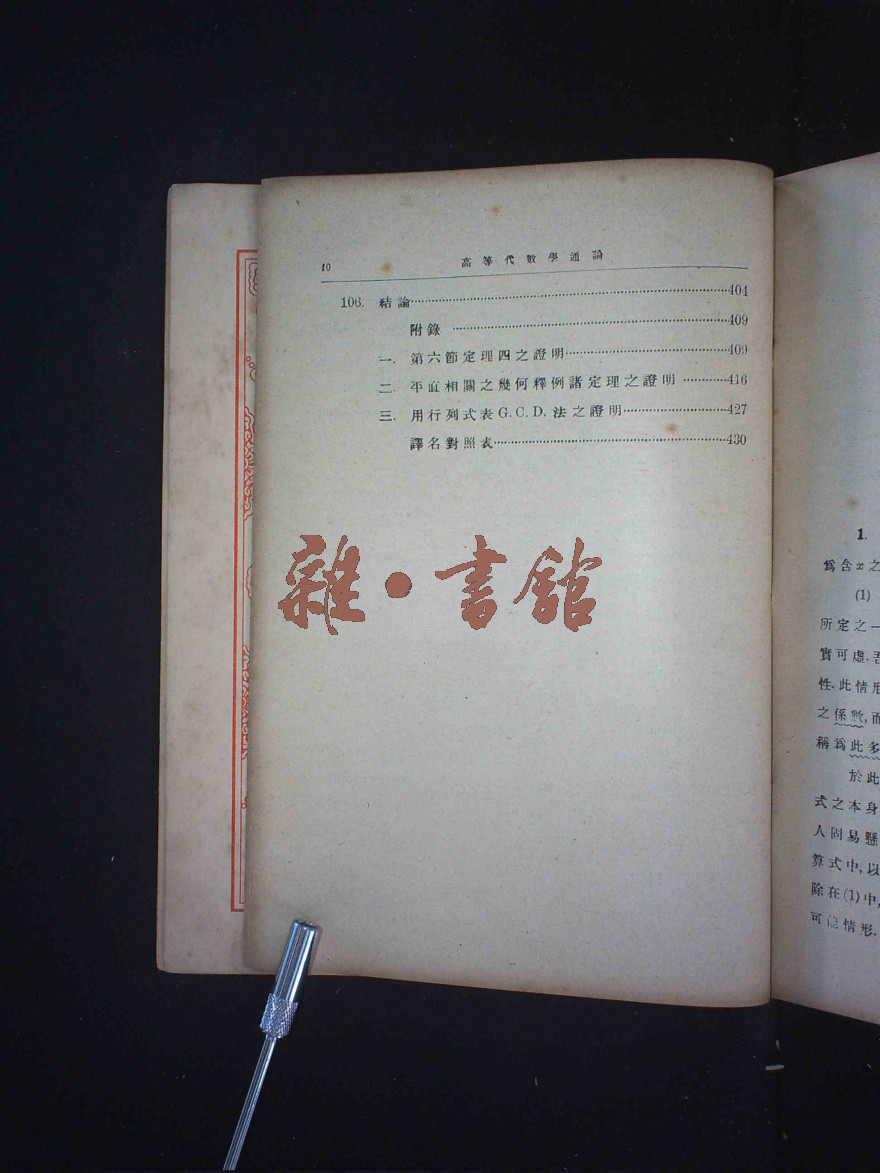 10 高等代數學通論
106. 結論……404
附錄……409
一. 第六節定理四之證明……409
二. 平面相關之幾何釋例諸定理之證明……416
三. 用行列式表G.C.D.法之證明……427
譯名對照表……430
雜·書館
1.
爲含x之
(1)
所定之一
實可虛.吾
性.此情形
之係數,而
稱爲此多
於此
式之本身
人固易懸
算式中,以
除在(1)中,
可能情形.